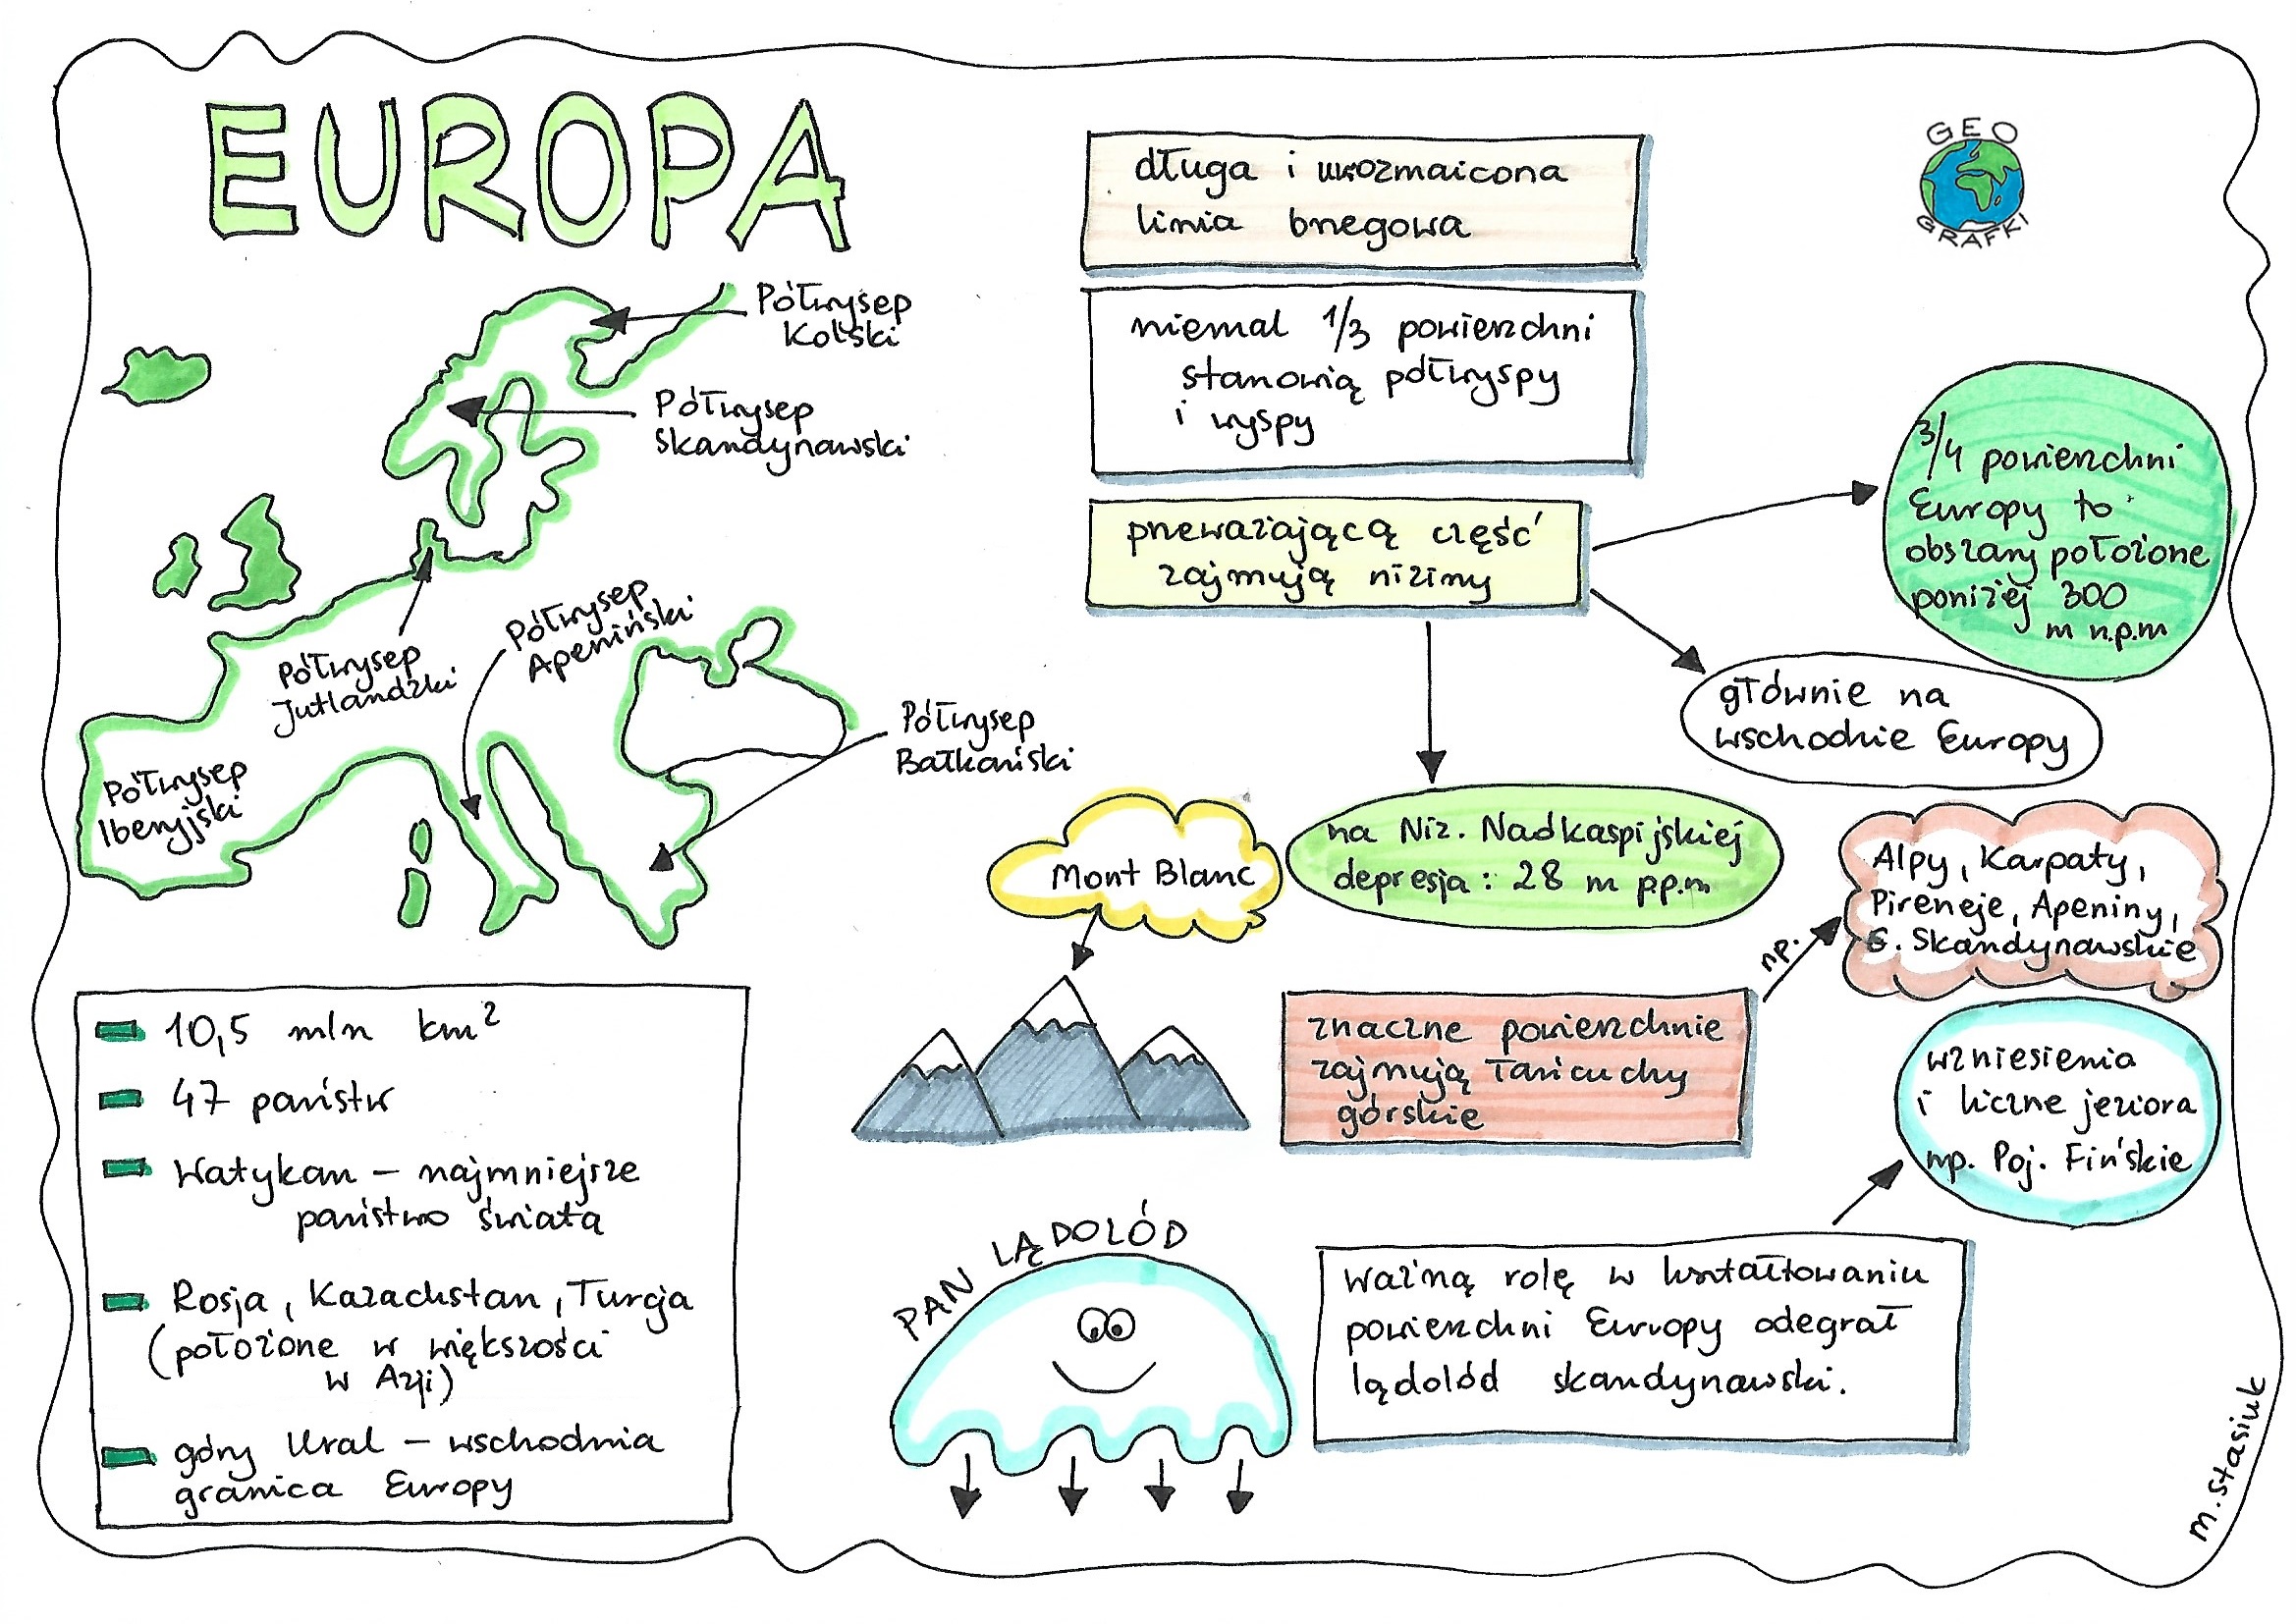 EUROPA
GEO
GRAFKI
długa i urozmaicona
linia brzegowa
niemal 1/3 powierzchni
stanowią półwyspy
i wyspy
przeważającą część
zajmują niziny
3/4 powierzchni
Europy to
obszary położone
poniżej 300
m n.p.m
głównie na
wschodzie Europy
na Niz. Nadkaspijskiej
depresja: 28 m p.p.m
Półwysep
Kolski
Półwysep
Skandynawski
Półwysep
Jutlandzki
Półwysep
Apeniński
Półwysep
Bałkański
Półwysep
Iberyjski
Mont Blanc
znaczne powierzchnie
zajmują łańcuchy
górskie
np.
Alpy, Karpaty,
Pireneje, Apeniny,
G. Skandynawskie
10,5 mln km²
47 państw
Watykan – najmniejsze
państwo świata
Rosja, Kazachstan, Turcja
(położone w większości
w Azji)
góry Ural – wschodnia
granica Europy
PAN LĄDOLÓD
ważną rolę w kształtowaniu
powierzchni Europy odegrał
lądolód skandynawski.
wzniesienia
i liczne jeziora
np. Poj. Fińskie
M. Stasiuk